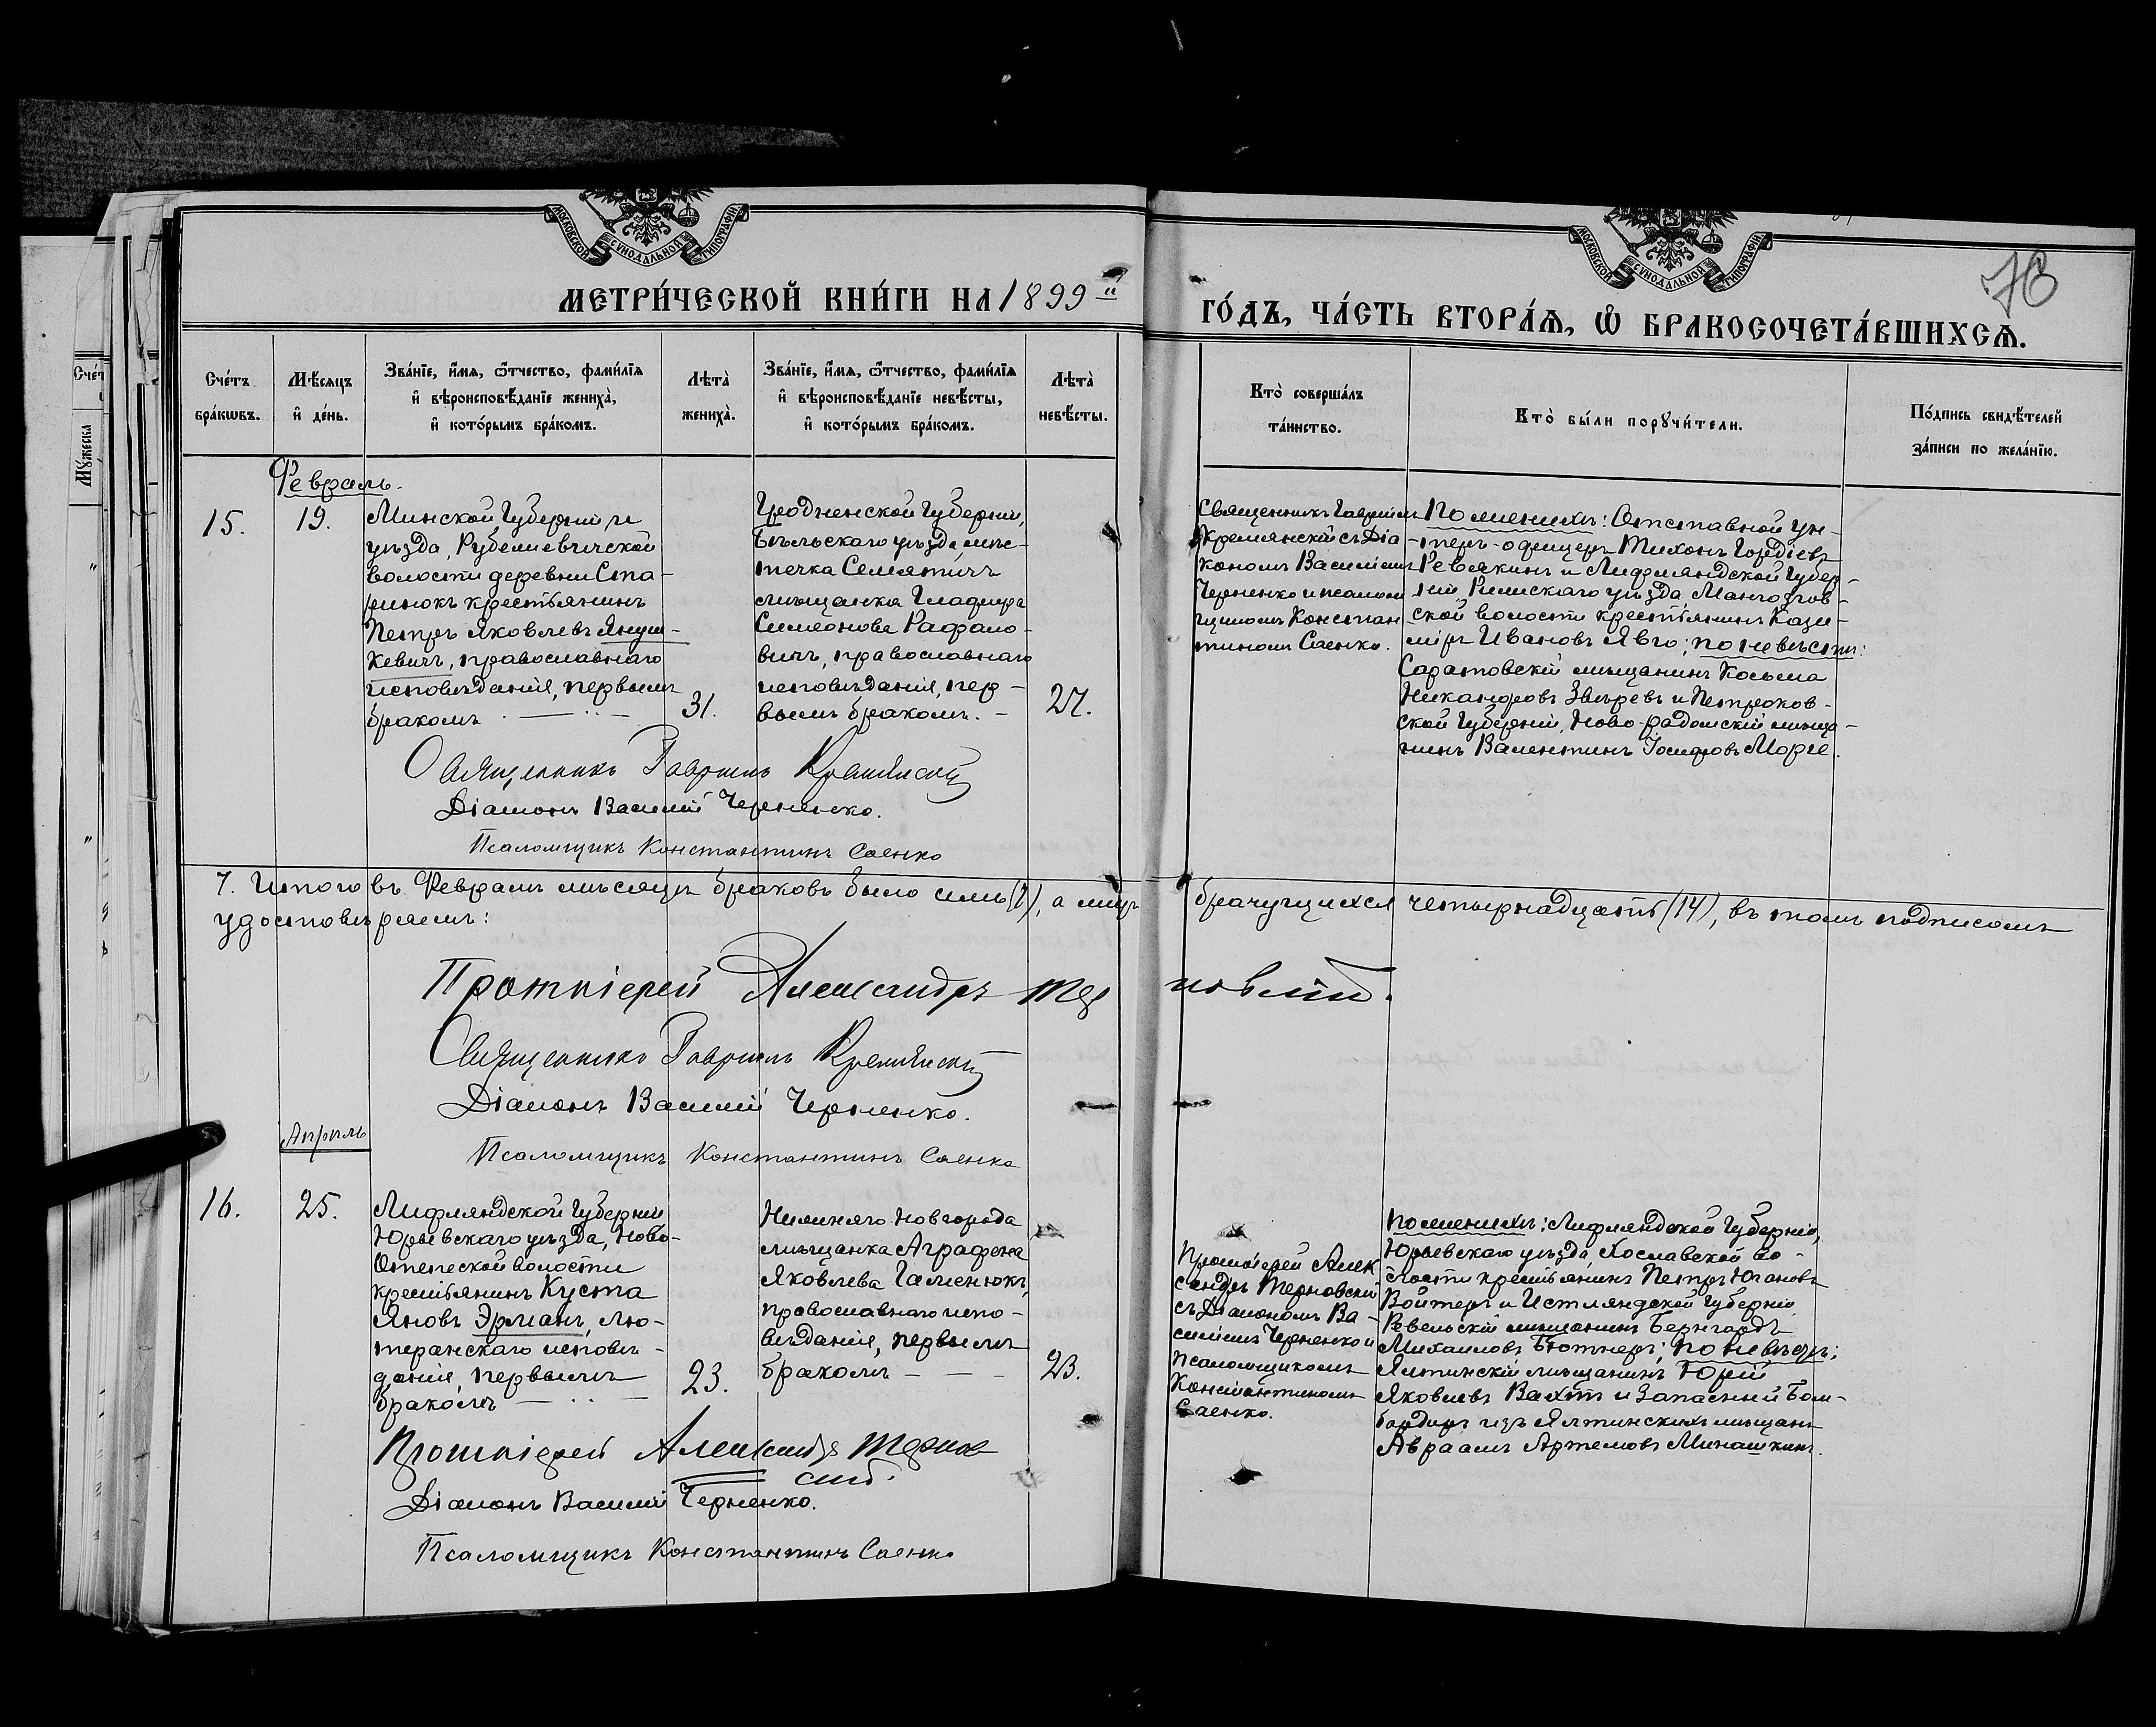 МОСКОВСКОЙ СѴНОДАЛЬНОЙ ТИПОГРАФІИ
МОСКОВСКОЙ СѴНОДАЛЬНОЙ ТИПОГРАФІИ
78
МЕТРИ́ЧЕСКОЙ КНИ́ГИ НА 1899й
ГО́ДЪ, ЧА́СТЬ ВТОРА́Ѧ, Ѡ҆ БРАКОСОЧЕТА́ВШИХСѦ.
Сче́тъ
бра́кѡвъ.
Мѣ́сѧцъ
и҆ де́нь.
Зва́нїе, и҆́мѧ, ѻ҆́тчество, фами́лїѧ
и҆ вѣроисповѣ́данїе жениха̀,
и҆ кото́рымъ бра́комъ.
Лѣта̀
жениха̀.
Зва́нїе, и҆́мѧ, ѻ҆́тчество, фами́лїѧ
и҆ вѣроисповѣ́данїе невѣ́сты,
и҆ кото́рымъ бра́комъ.
Лѣта̀
невѣ́сты.
Кто̀ соверша́лъ
та́инство.
Кто̀ бы́ли порꙋчи́тели.
По́дпись свидѣ́телей
за́писи по жела́нїю.
Сче́т
Мꙋ́жеска
Февраль.
15.
19.
Минской Губерніи, и
уѣзда, Рубежевичской
волости деревни Ста-
ринокъ крестьянинъ
Петръ Яковлевъ Януш-
кевичъ, православнаго
исповѣданія, первымъ
бракомъ
31.
Гродненской Губерніи,
Бѣльскаго уѣзда, мѣс-
течка Семятичъ
мѣщанка
Симеонова Рафало-
вичъ, православнаго
исповѣданія, пер-
вымъ бракомъ. -
27.
Священникъ Гавріилъ
Кремянскій съ Діа-
кономъ Василіемъ
Черненко и псалом
щикомъ Констан
тиномъ Саенко.
По женихѣ: Отставной ун-
теръ-офицеръ Тихонъ Гордіевъ
Ревякинъ и Лифляндской Губер-
ніи, Рижскаго уѣзда
ской волости крестьянинъ Кази-
міръ Ивановъ Явго; по невѣстѣ:
Саратовскій мѣщанинъ Косьма
Никаноровъ Звѣревъ и Петроков-
ской Губерніи, Ново-радомскій мѣща-
нинъ Валентинъ Іосифовъ Морге.
Священникъ Гавріилъ Кремянскій
Діаконъ Василій Черненко.
Псаломщикъ Константинъ Саенко
7. Итого въ Февралѣ мѣсяцѣ браковъ было семь (7), а лицъ брачущихся четырнадцать (14), въ томъ подписомъ
удостовѣряемъ:
Протоіерей Александръ Терновскій.
Священникъ Гавріилъ Кремянскій
Діаконъ Василій Черненко.
Псаломщикъ Константинъ Саенко
Апрѣль
16.
25.
Лифляндской Губерніи
Юрьевскаго уѣзда, Ново-
Отепеской волости
крестьянинъ Куста
Яновъ Эрманъ, лю-
теранскаго исповѣ-
данія, первымъ
бракомъ
23.
Нижняго Новгорода
мѣщанка Аграфена
Яковлева Гаменюкъ,
православнаго испо-
вѣданія, первымъ
бракомъ - - -
23.
Протоіерей Алек
сандръ Терновскій
съ Діакономъ Ва-
силіемъ Черненко и
псаломщикомъ
Константиномъ
Саенко.
По женихѣ: Лифляндской Губерніи,
Юрьевскаго уѣзда, Хославской во-
лости крестьянинъ Петръ Югановъ
Войтеръ и Истляндской Губерніи
Ревельскій мѣщанинъ Бернгардъ
Михаиловъ Бютнеръ; по невѣстѣ:
Ялтинскій мѣщанинъ Юрій
Яковлевъ Вахтъ и запасный бом-
бардиръ изъ Ялтинскихъ мѣщанъ
Авраамъ Артемовъ Минашкинъ.
Протоіерей Александръ Тернов
скій.
Діаконъ Василій Черненко.
Псаломщикъ Константинъ Саенко